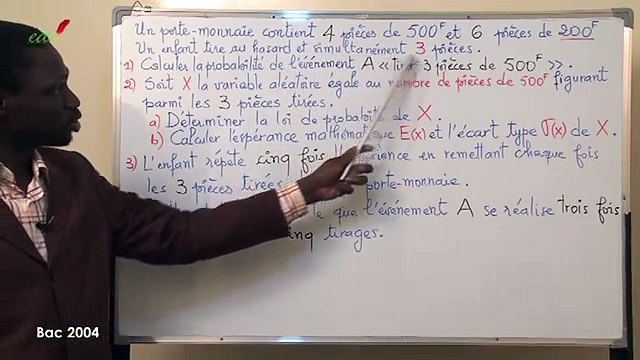 Un porte-monnaie contient 4 pièces de 500F et 6 pièces de 200F
Un enfant tire au hasard et simultanément 3 pièces.
1) Calculer la probabilité de l'événement A << tirer 3 pièces de 500F >>.
2) Soit X la variable aléatoire égale au nombre de pièces de 500F figurant
parmi les 3 pièces tirées.
a) Déterminer la loi de probabilité de X.
b) Calculer l'espérance mathématique E(x) et l'écart type σ(x) de X.
3) L'enfant répète cinq fois l'expérience en remettant chaque fois
les 3 pièces tirées porte-monnaie.
que l'événement A se réalise trois fois
cinq tirages.
Bac 2004